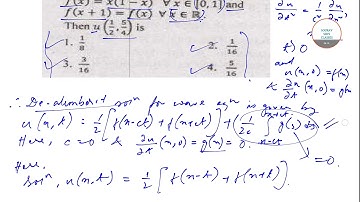 f(x) = x(1−x) ∀ x ∈ [0,1] and
f(x+1) = f(x) ∀ x ∈ ℝ.
Then u(1/2, 5/4) is
1. 1/8
2. 1/16
3. 3/16
4. 5/16
t>0
and
u(x,0)=f(x)
& ∂u/∂t (x,0) = g(x)
∴ De-alembert solⁿ for wave eqⁿ is given by
u(x,t) = 1/2 [f(x−ct) + f(x+ct)] + (1/2c ∫ g(s) ds)
x+ct
x−ct
Here, c=0 & ∂u/∂t (x,0) = g(x) = 0.
= 0.
Here,
solⁿ, u(x,t) = 1/2 [f(x−t) + f(x+t)].